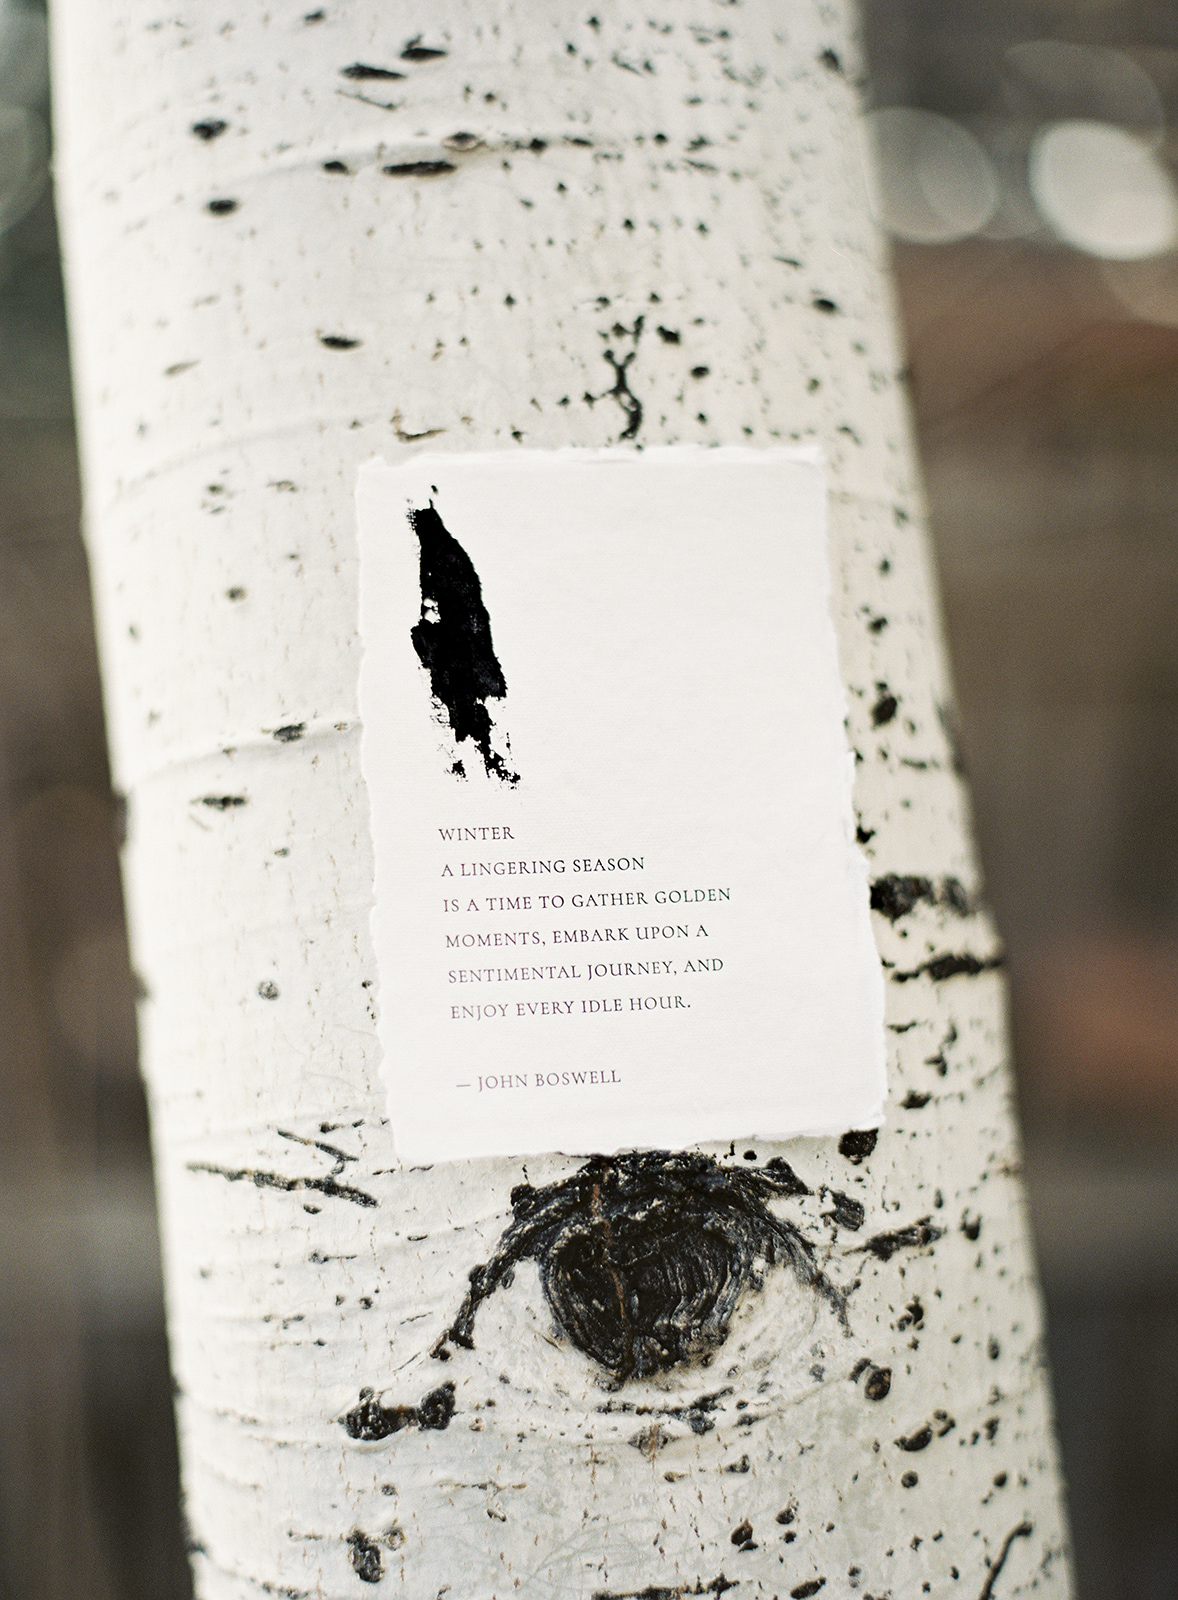 WINTER
A LINGERING SEASON
IS A TIME TO GATHER GOLDEN
MOMENTS, EMBARK UPON A
SENTIMENTAL JOURNEY, AND
ENJOY EVERY IDLE HOUR.
— JOHN BOSWELL